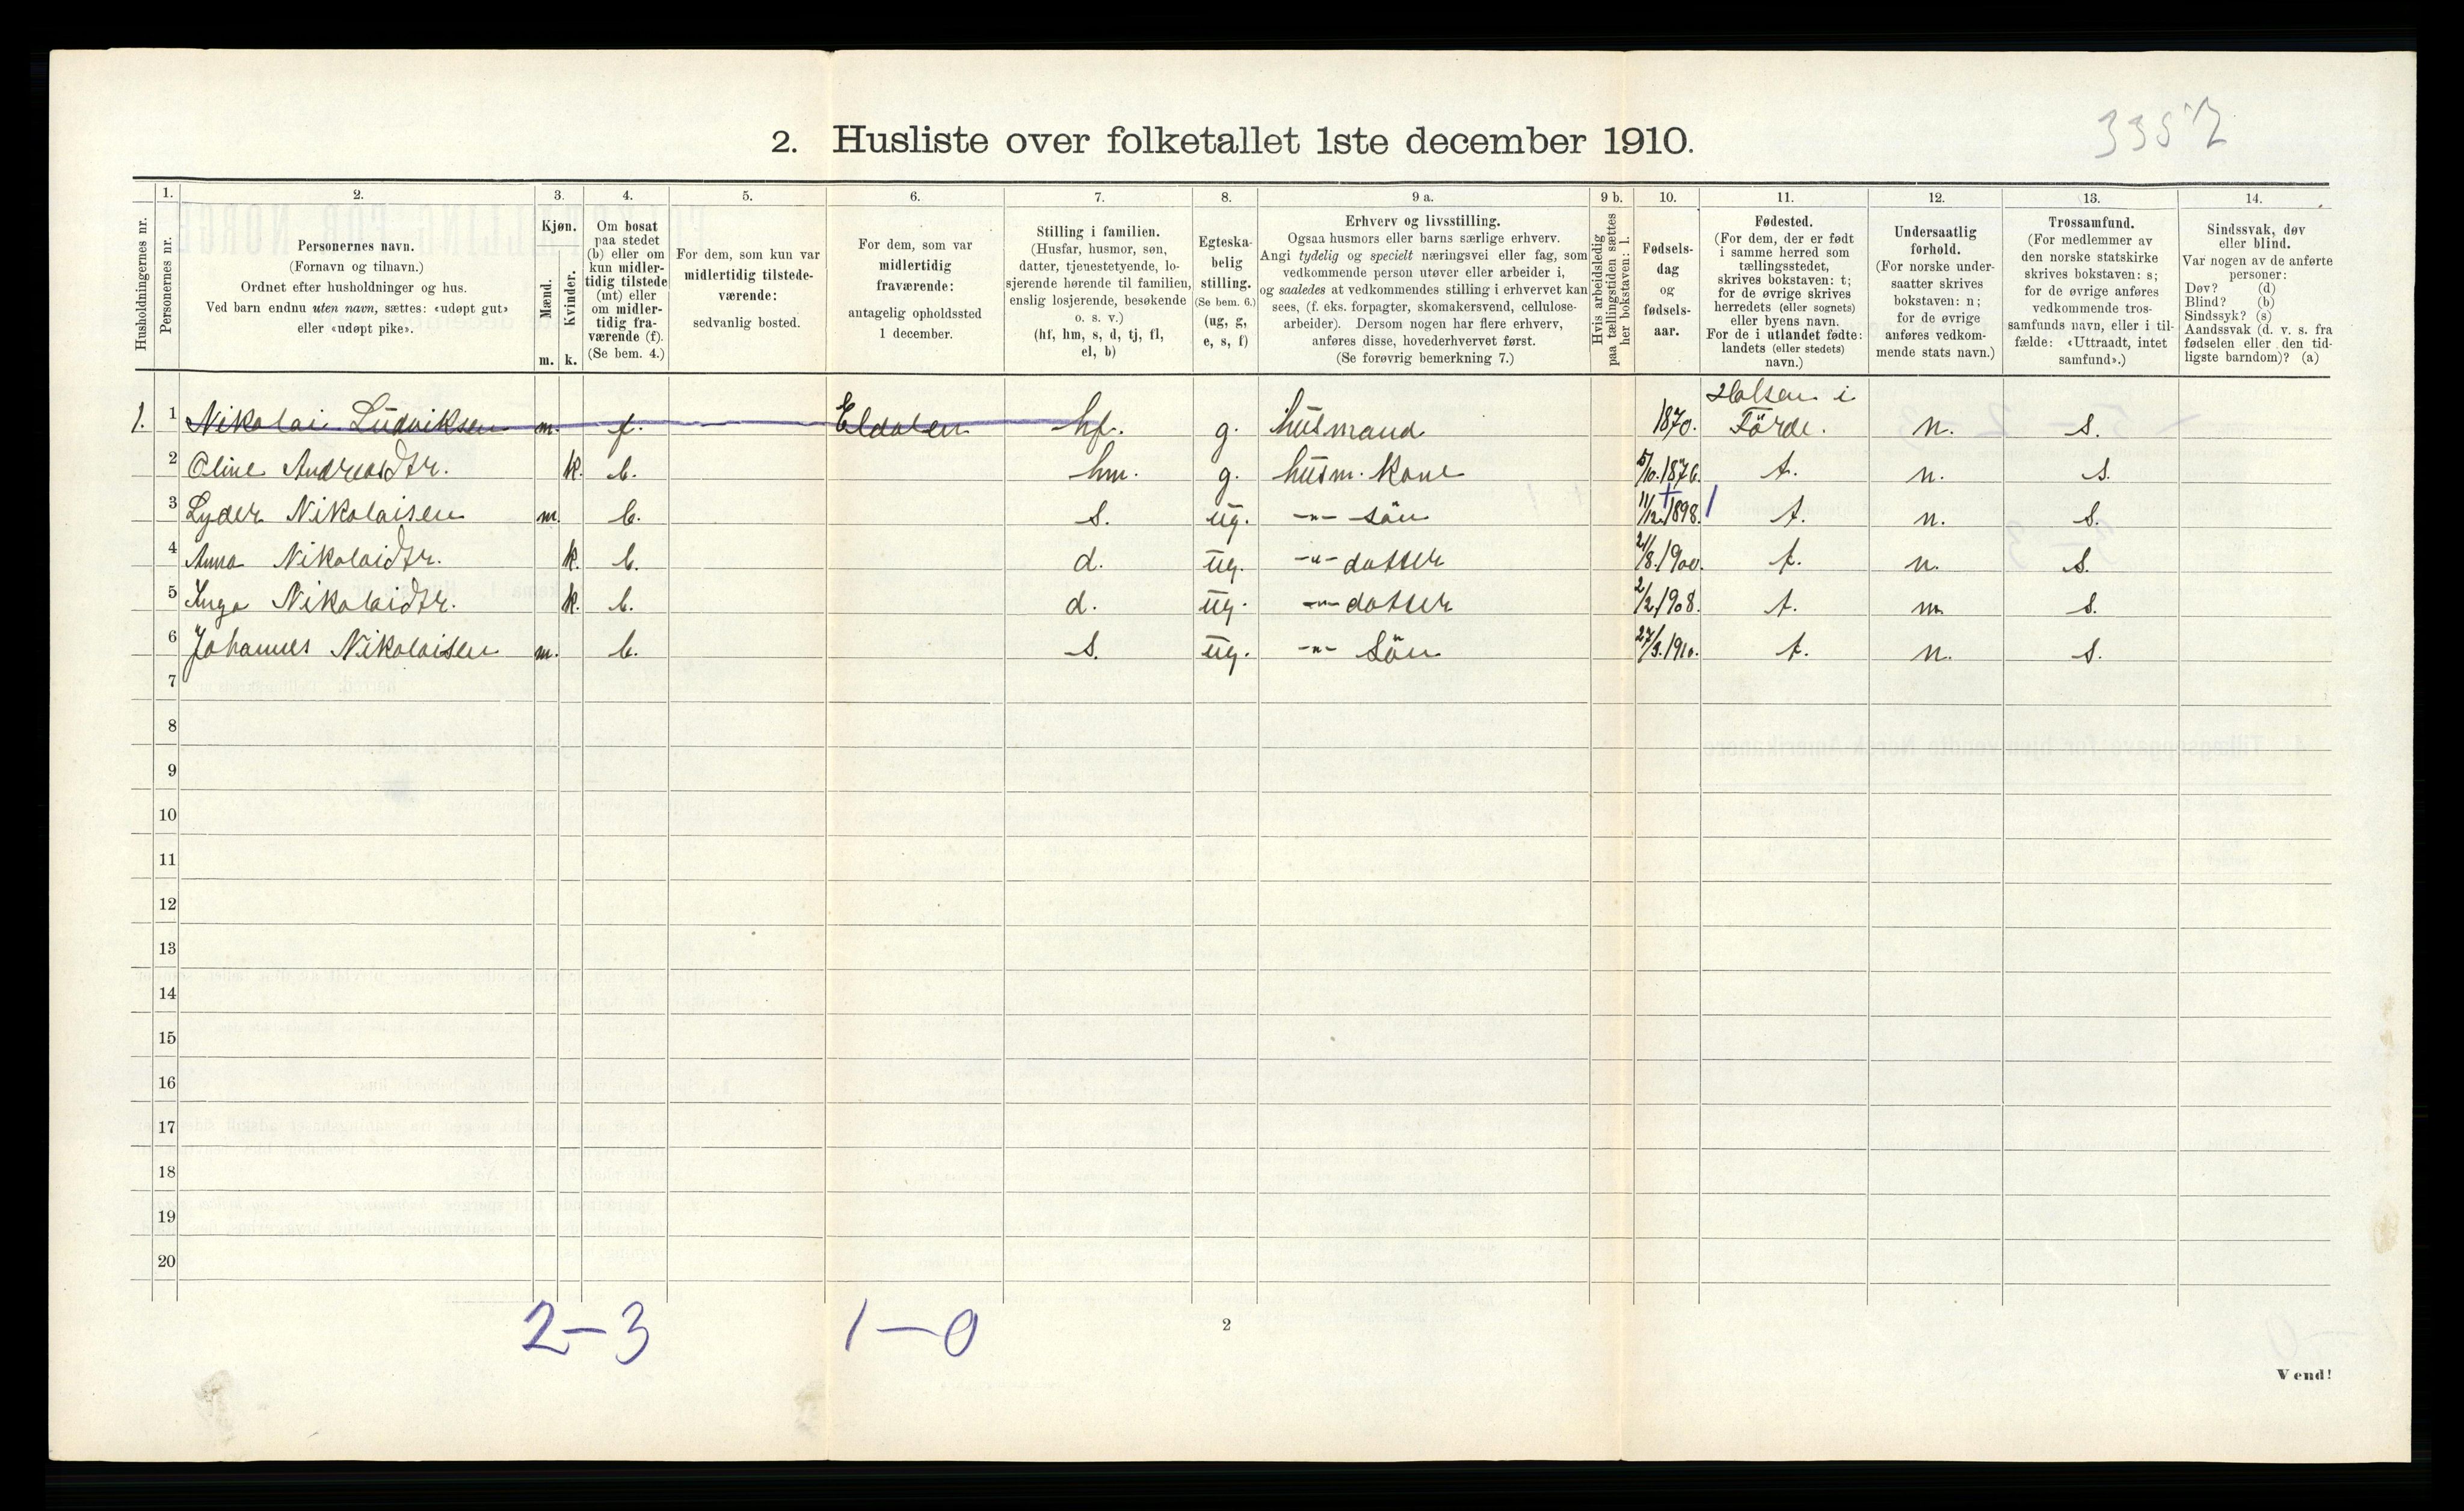 3357
2. Husliste over folketallet 1ste december 1910.
Husholdningernes nr.
1. Personernes nr.
2. Personernes navn. (Fornavn og tilnavn.) Ordnet efter husholdninger og hus. Ved barn endnu uten navn, sættes: «udøpt gut» eller «udøpt pike».
3. Kjøn. Mænd. m. Kvinder. k.
4. Om bosat paa stedet (b) eller om kun midlertidig tilstede (mt) eller om midlertidig fraværende (f). (Se bem. 4.)
5. For dem, som kun var midlertidig tilstedeværende: sedvanlig bosted.
6. For dem, som var midlertidig fraværende: antagelig opholdssted 1 december.
7. Stilling i familien. (Husfar, husmor, søn, datter, tjenestetyende, losjerende hørende til familien, enslig losjerende, besøkende o. s. v.) (hf, hm, s, d, tj, fl, el, b)
8. Egteskabelig stilling. (Se bem. 6.) (ug, g, e, s, f)
9 a. Erhverv og livsstilling. Ogsaa husmors eller barns særlige erhverv. Angi tydelig og specielt næringsvei eller fag, som vedkommende person utøver eller arbeider i, og saaledes at vedkommendes stilling i erhvervet kan sees, (f. eks. forpagter, skomakersvend, cellulose-arbeider). Dersom nogen har flere erhverv, anføres disse, hovederhvervet først. (Se forøvrig bemerkning 7.)
9 b. Hvis arbeidsledig paa tællingstiden sættes her bokstaven: l.
10. Fødsels-dag og fødsels-aar.
11. Fødested. (For dem, der er født i samme herred som tællingsstedet, skrives bokstaven: t; for de øvrige skrives herredets (eller sognets) eller byens navn. For de i utlandet fødte: landets (eller stedets) navn.)
12. Undersaatlig forhold. (For norske undersaatter skrives bokstaven: n; for de øvrige anføres vedkommende stats navn.)
13. Trossamfund. (For medlemmer av den norske statskirke skrives bokstaven: s; for de øvrige anføres vedkommende trossamfunds navn, eller i tilfælde: «Uttraadt, intet samfund».)
14. Sindssvak, døv eller blind. Var nogen av de anførte personer: Døv? (d) Blind? (b) Sindssyk? (s) Aandssvak (d. v. s. fra fødselen eller den tidligste barndom)? (a)
1. 1 Nikolai Ludviksen m. f. Eldalen hf. g. husmand 1870. Holsen i Førde. n. s.
2 Oline Andreasdtr. k. b. hm. g. husm. kone 5/10.1876. t. n. s.
3 Lyder Nikolaisen m. b. s. ug. -"- sön 11/12.1898. t. n. s.
4 Anna Nikolaidtr. k. b. d. ug. -"- datter 21/8.1900. t. n. s.
5 Inga Nikolaidtr. k. b. d. ug. -"- datter 2/2.1908. t. n. s.
6 Johannes Nikolaisen m. b. s. ug. -"- Sön 27/3.1910. t. n. s.
7
8
9
10
11
12
13
14
15
16
17
18
19
20
2-3 1-0
2
Vend!